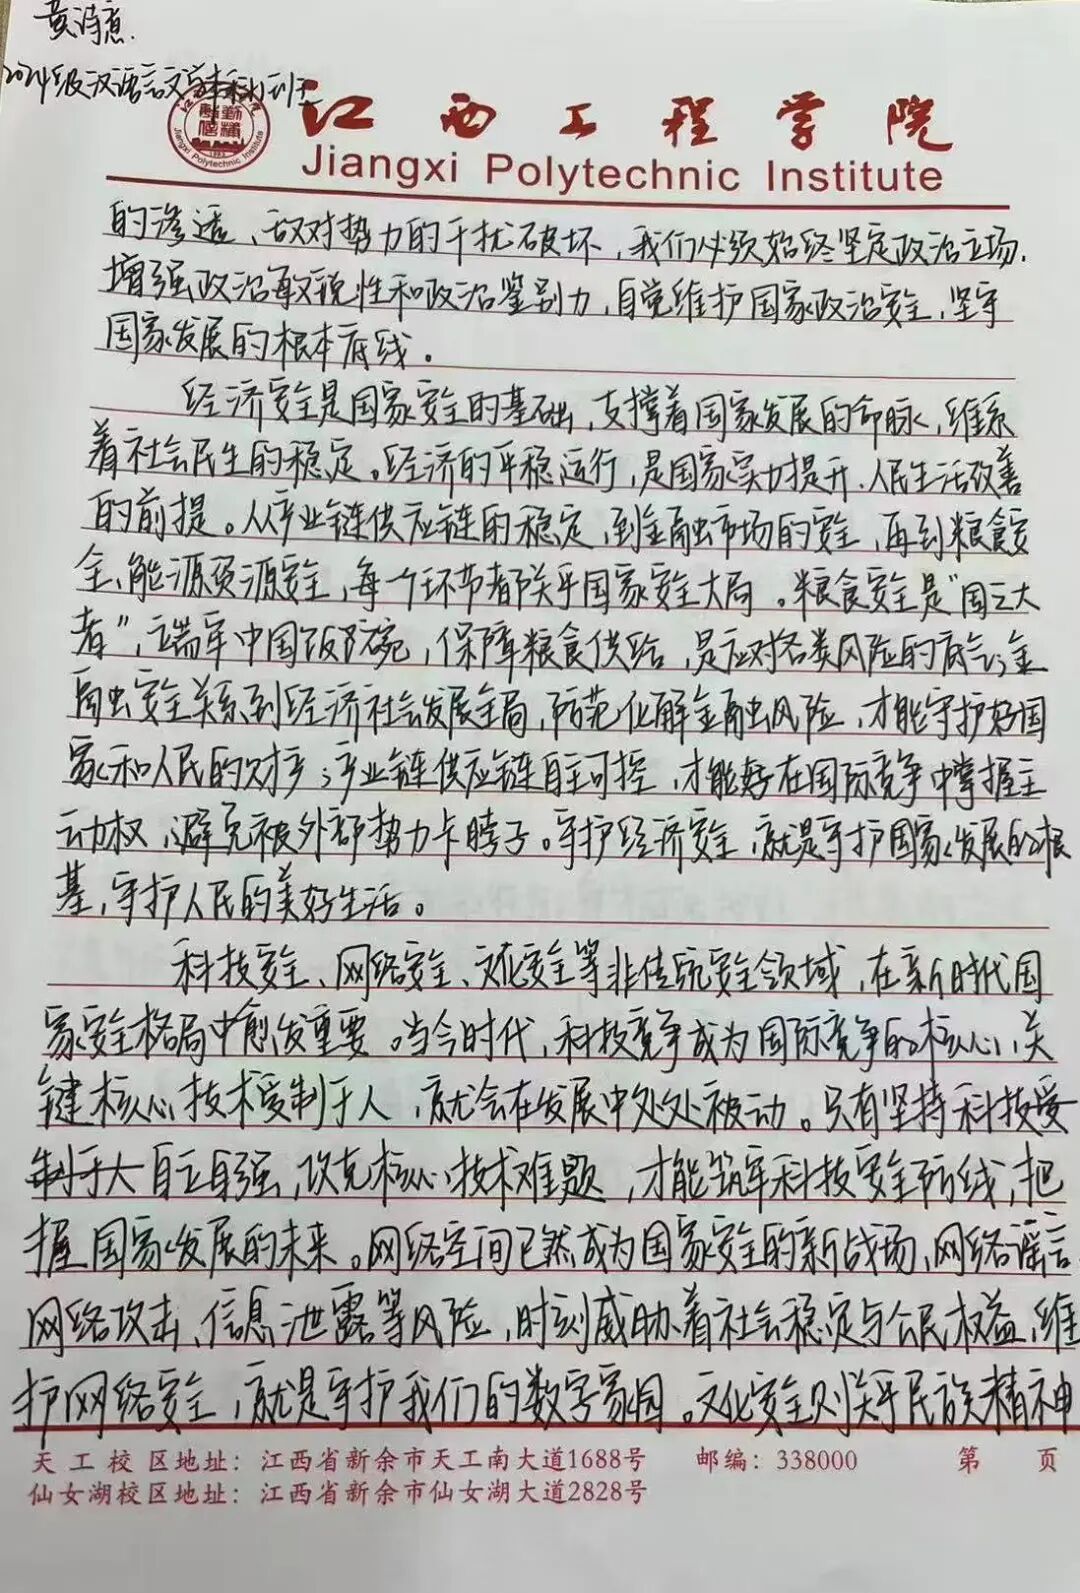 黄诗意.
2024级汉语言文学本科1班
江西工程学院
Jiangxi Polytechnic Institute
的渗透、敌对势力的干扰破坏，我们必须始终坚定政治立场.
增强政治敏锐性和政治鉴别力，自觉维护国家政治安全，坚守
国家发展的根本底线。
经济安全是国家安全的基础，支撑着国家发展的命脉，维系
着社会民生的稳定。经济的平稳运行，是国家实力提升、人民生活改善
的前提。从产业链供应链的稳定，到金融市场的安全，再到粮食安
全、能源资源安全，每一个环节都关乎国家安全大局。粮食安全是“国之大
者”，端牢中国饭碗，保障粮食供给，是应对各类风险的底气；金
融安全关系到经济社会发展全局，防范化解金融风险，才能守护好国
家和人民的财产；产业链供应链自主可控，才能好在国际竞争中掌握主
动权，避免被外部势力卡脖子。守护经济安全，就是守护国家发展的根
基，守护人民的美好生活。
科技安全、网络安全、文化安全等非传统安全领域，在新时代国
家安全格局中愈发重要。当今时代，科技竞争成为国际竞争的核心，关
键核心技术受制于人，就会在发展中处处被动。只有坚持科技受
制于人自立自强，攻克核心技术难题，才能筑牢科技安全防线，把
握国家发展的未来。网络空间已然成为国家安全的新战场，网络谣言
网络攻击、信息泄露等风险，时刻威胁着社会稳定与公民权益，维
护网络安全，就是守护我们的数字家园。文化安全则关乎民族精神
天工校区地址：江西省新余市天工南大道1688号 邮编：338000 第 页
仙女湖校区地址：江西省新余市仙女湖大道2828号